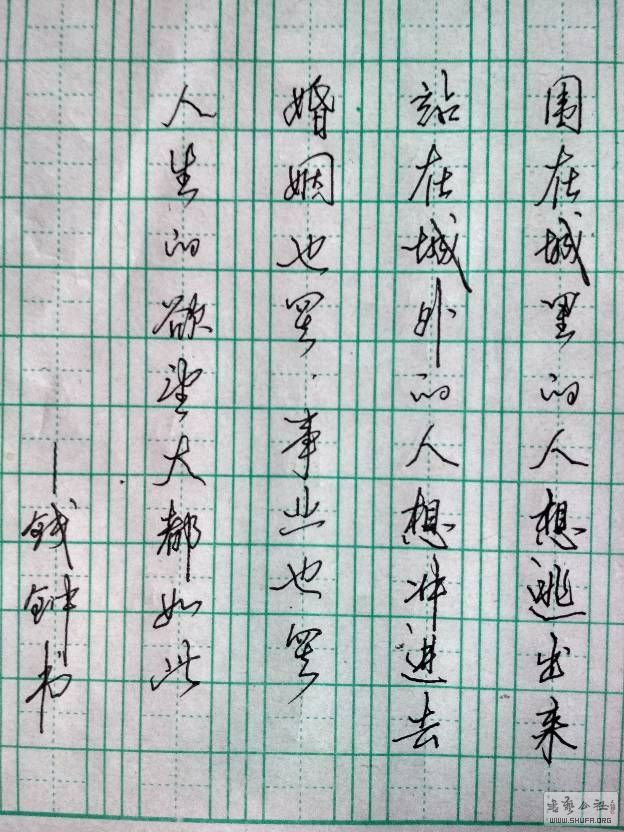 围在城里的人想逃出来
站在城外的人想冲进去
婚姻也罢·事业也罢
人生的欲望大都如此
—钱钟书
书艺公社
WWW.SHUFA.ORG